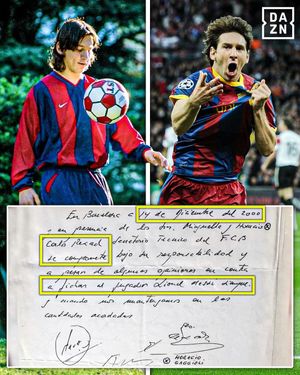 DAZN
En Barcelona a 14 de diciembre del 2000
en presencia de los srs. Minguella y Horacio
Carlo Rexach Secretario Técnico del F.C.B
se compromete bajo su responsabilidad y
a pesar de algunas opiniones en contra
a fichar al jugador Lionel Messi siempre
y cuando nos mantengamos en las
cantidades acordadas
HORACIO
GAGGIOLI